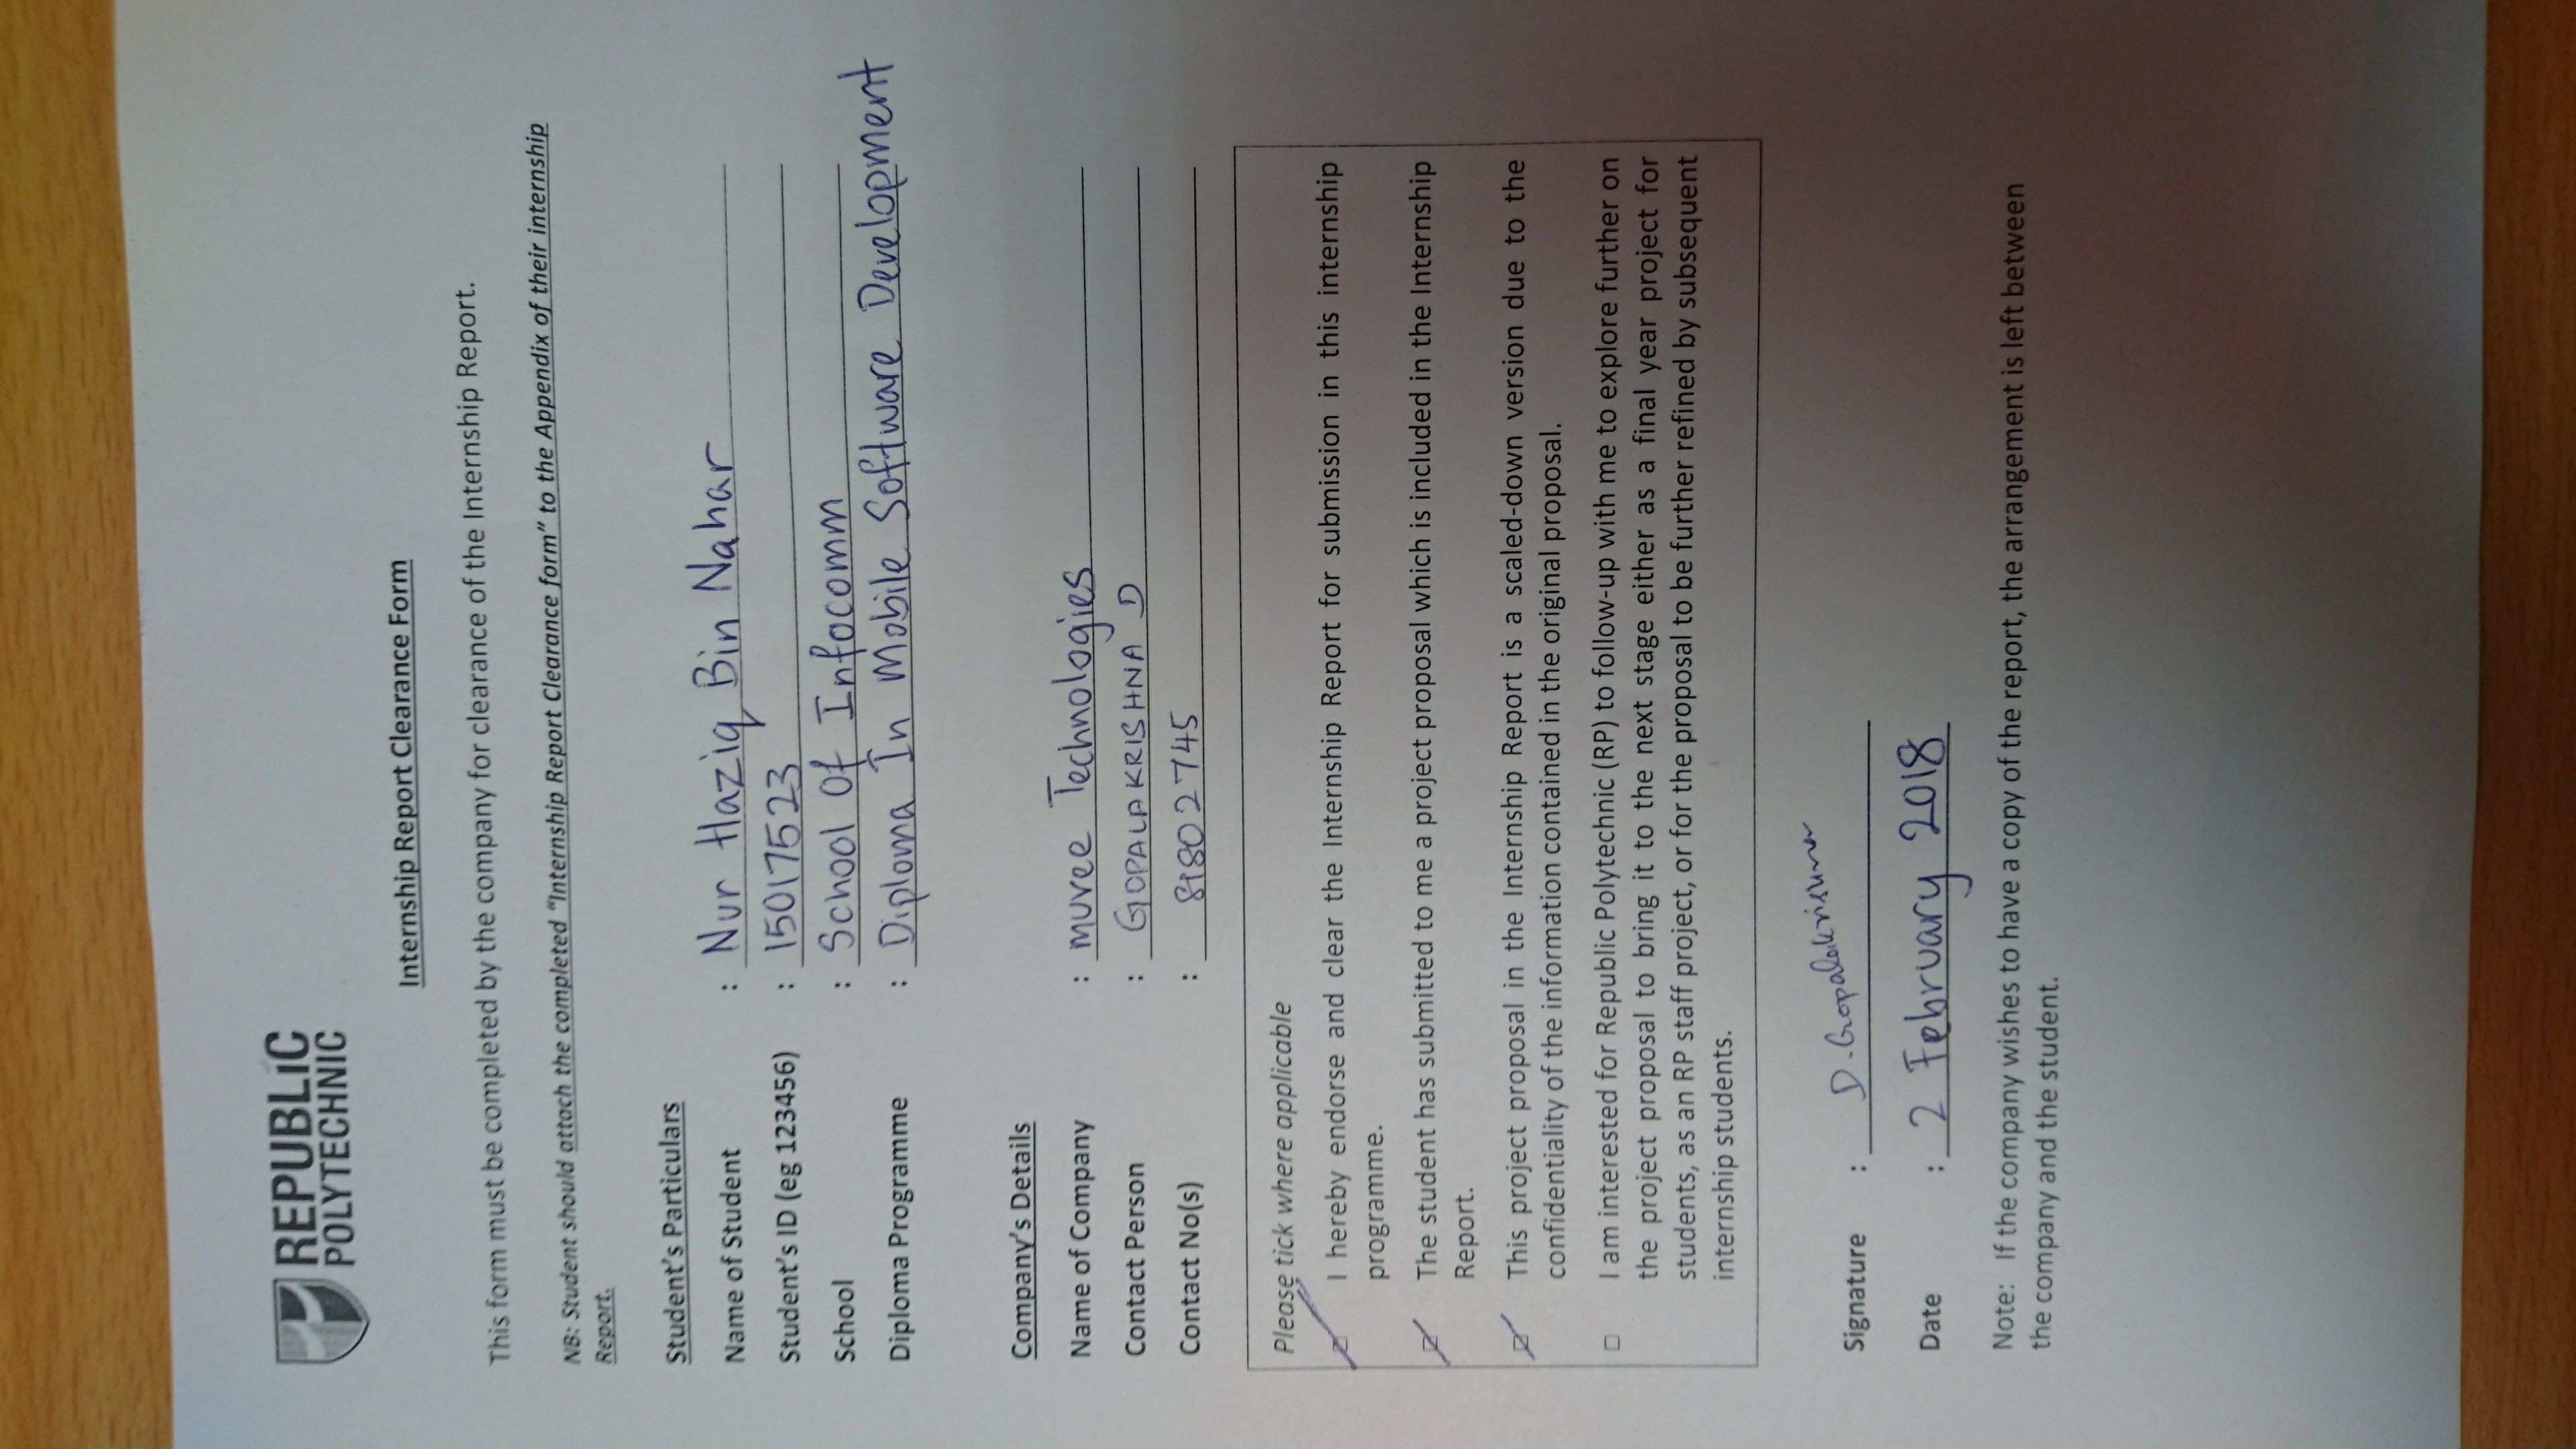 REPUBLIC
POLYTECHNIC
Internship Report Clearance Form
This form must be completed by the company for clearance of the Internship Report.
NB: Student should attach the completed "Internship Report Clearance form" to the Appendix of their internship
Report.
Student's Particulars
Name of Student : Nur Haziq Bin Nahar
Student's ID (eg 123456) : 15017523
School : School Of Infocomm
Diploma Programme : Diploma In Mobile Software Development
Company's Details
Name of Company : muvee Technologies
Contact Person : GOPALAKRISHNA D
Contact No(s) : 81802745
Please tick where applicable
I hereby endorse and clear the Internship Report for submission in this internship
programme.
The student has submitted to me a project proposal which is included in the Internship
Report.
This project proposal in the Internship Report is a scaled-down version due to the
confidentiality of the information contained in the original proposal.
I am interested for Republic Polytechnic (RP) to follow-up with me to explore further on
the project proposal to bring it to the next stage either as a final year project for
students, as an RP staff project, or for the proposal to be further refined by subsequent
internship students.
Signature : D. Gopalakrishna
Date : 2 February 2018
Note: If the company wishes to have a copy of the report, the arrangement is left between
the company and the student.